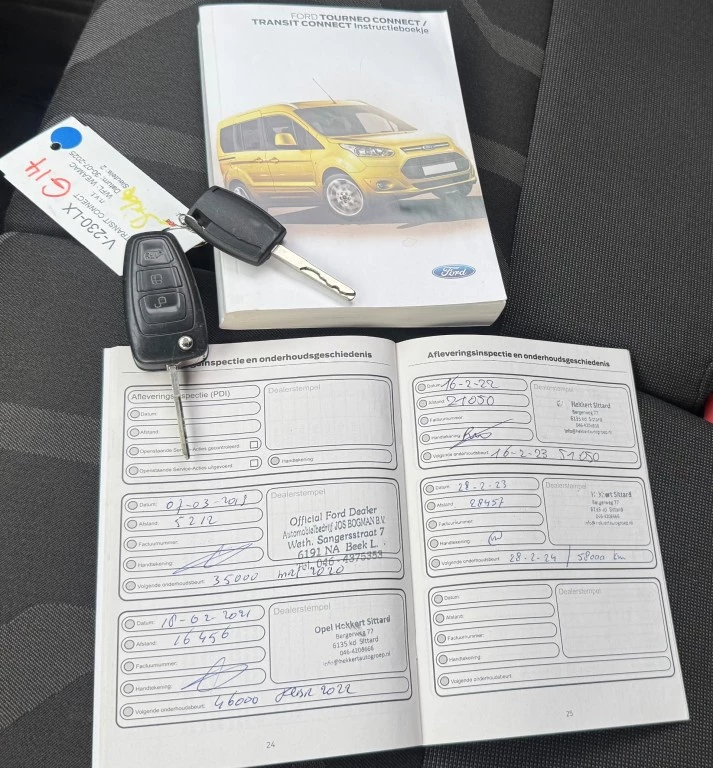 FORD TOURNEO CONNECT /
TRANSIT CONNECT Instructieboekje
Ford
V-230-LX G14
TRANSIT CONNECT
n.v.t.
WPL WEAMAC
Datum: 30-07-2025
Sleutels: 2
sinspectie en onderhoudsgeschiedenis
Afleveringsinspectie (PDI)
Dealerstempel
Datum:
Afstand:
Openstaande Service-Acties gecontroleerd:
Openstaande Service-Acties uitgevoerd:
Handtekening:
Datum: 07-03-2019
Afstand: 5212
Factuurnummer:
Handtekening:
Volgende onderhoudsbeurt: 35000 mrt 2020
Dealerstempel
Official Ford Dealer
Automobielbedrijf JOS BOGMAN B.V.
Weth. Sangersstraat 7
6191 NA Beek L.
Tel. 046-4375353
Datum: 18-02-2021
Afstand: 16456
Factuurnummer:
Handtekening:
Volgende onderhoudsbeurt: 46000 febr 2022
Dealerstempel
Opel Hekkert Sittard
Bergerweg 77
6135 kd Sittard
046-4208666
info@hekkertautogroep.nl
24
Afleveringsinspectie en onderhoudsgeschiedenis
Datum: 16-2-22
Afstand: 21050
Factuurnummer:
Handtekening:
Volgende onderhoudsbeurt: 16-2-23 51050
Dealerstempel
Hekkert Sittard
Bergerweg 77
6135 kd Sittard
046-4208666
info@hekkertautogroep.nl
Datum: 28-2-23
Afstand: 28457
Factuurnummer:
Handtekening:
Volgende onderhoudsbeurt: 28-2-24 / 58000 km
Dealerstempel
Sittard
Bergerweg 77
6135 kd Sittard
046-4208666
Datum:
Afstand:
Factuurnummer:
Handtekening:
Volgende onderhoudsbeurt:
Dealerstempel
25